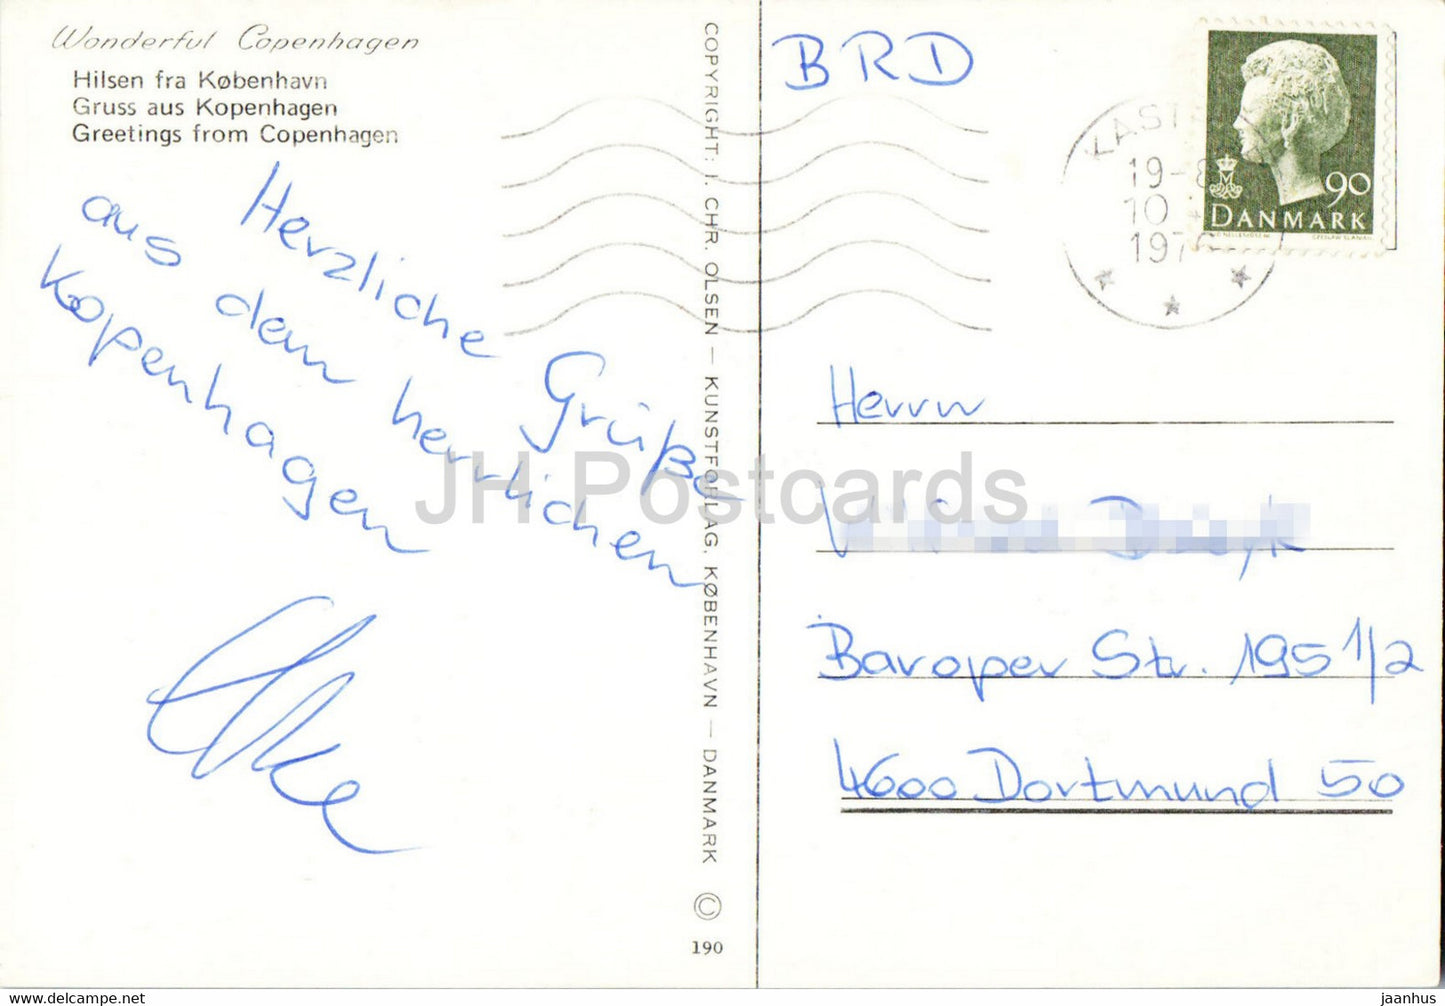 Wonderful Copenhagen
Hilsen fra København
Gruss aus Kopenhagen
Greetings from Copenhagen
Herzliche Grüße
aus dem herrlichen
Kopenhagen
Elke
COPYRIGHT: I. CHR. OLSEN — KUNSTFORLAG. KØBENHAVN — DANMARK ©
190
BRD
19-8
10
DANMARK
90
Herrn
Baroper Str. 195 1/2
4600 Dortmund 50
JH Postcards
www.delcampe.net
jaanhus